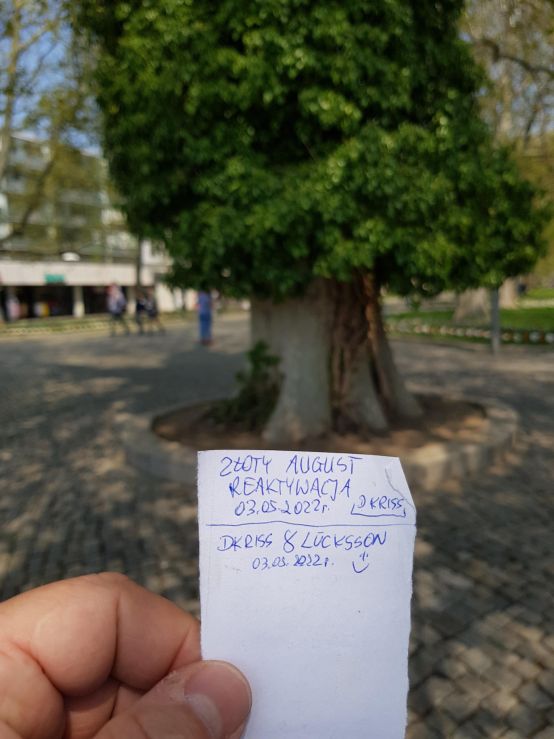 ZŁOTY AUGUST
REAKTYWACJA
03.05.2022r. DKRISS
DKRISS & LÜCKSSON
03.05.2022r.